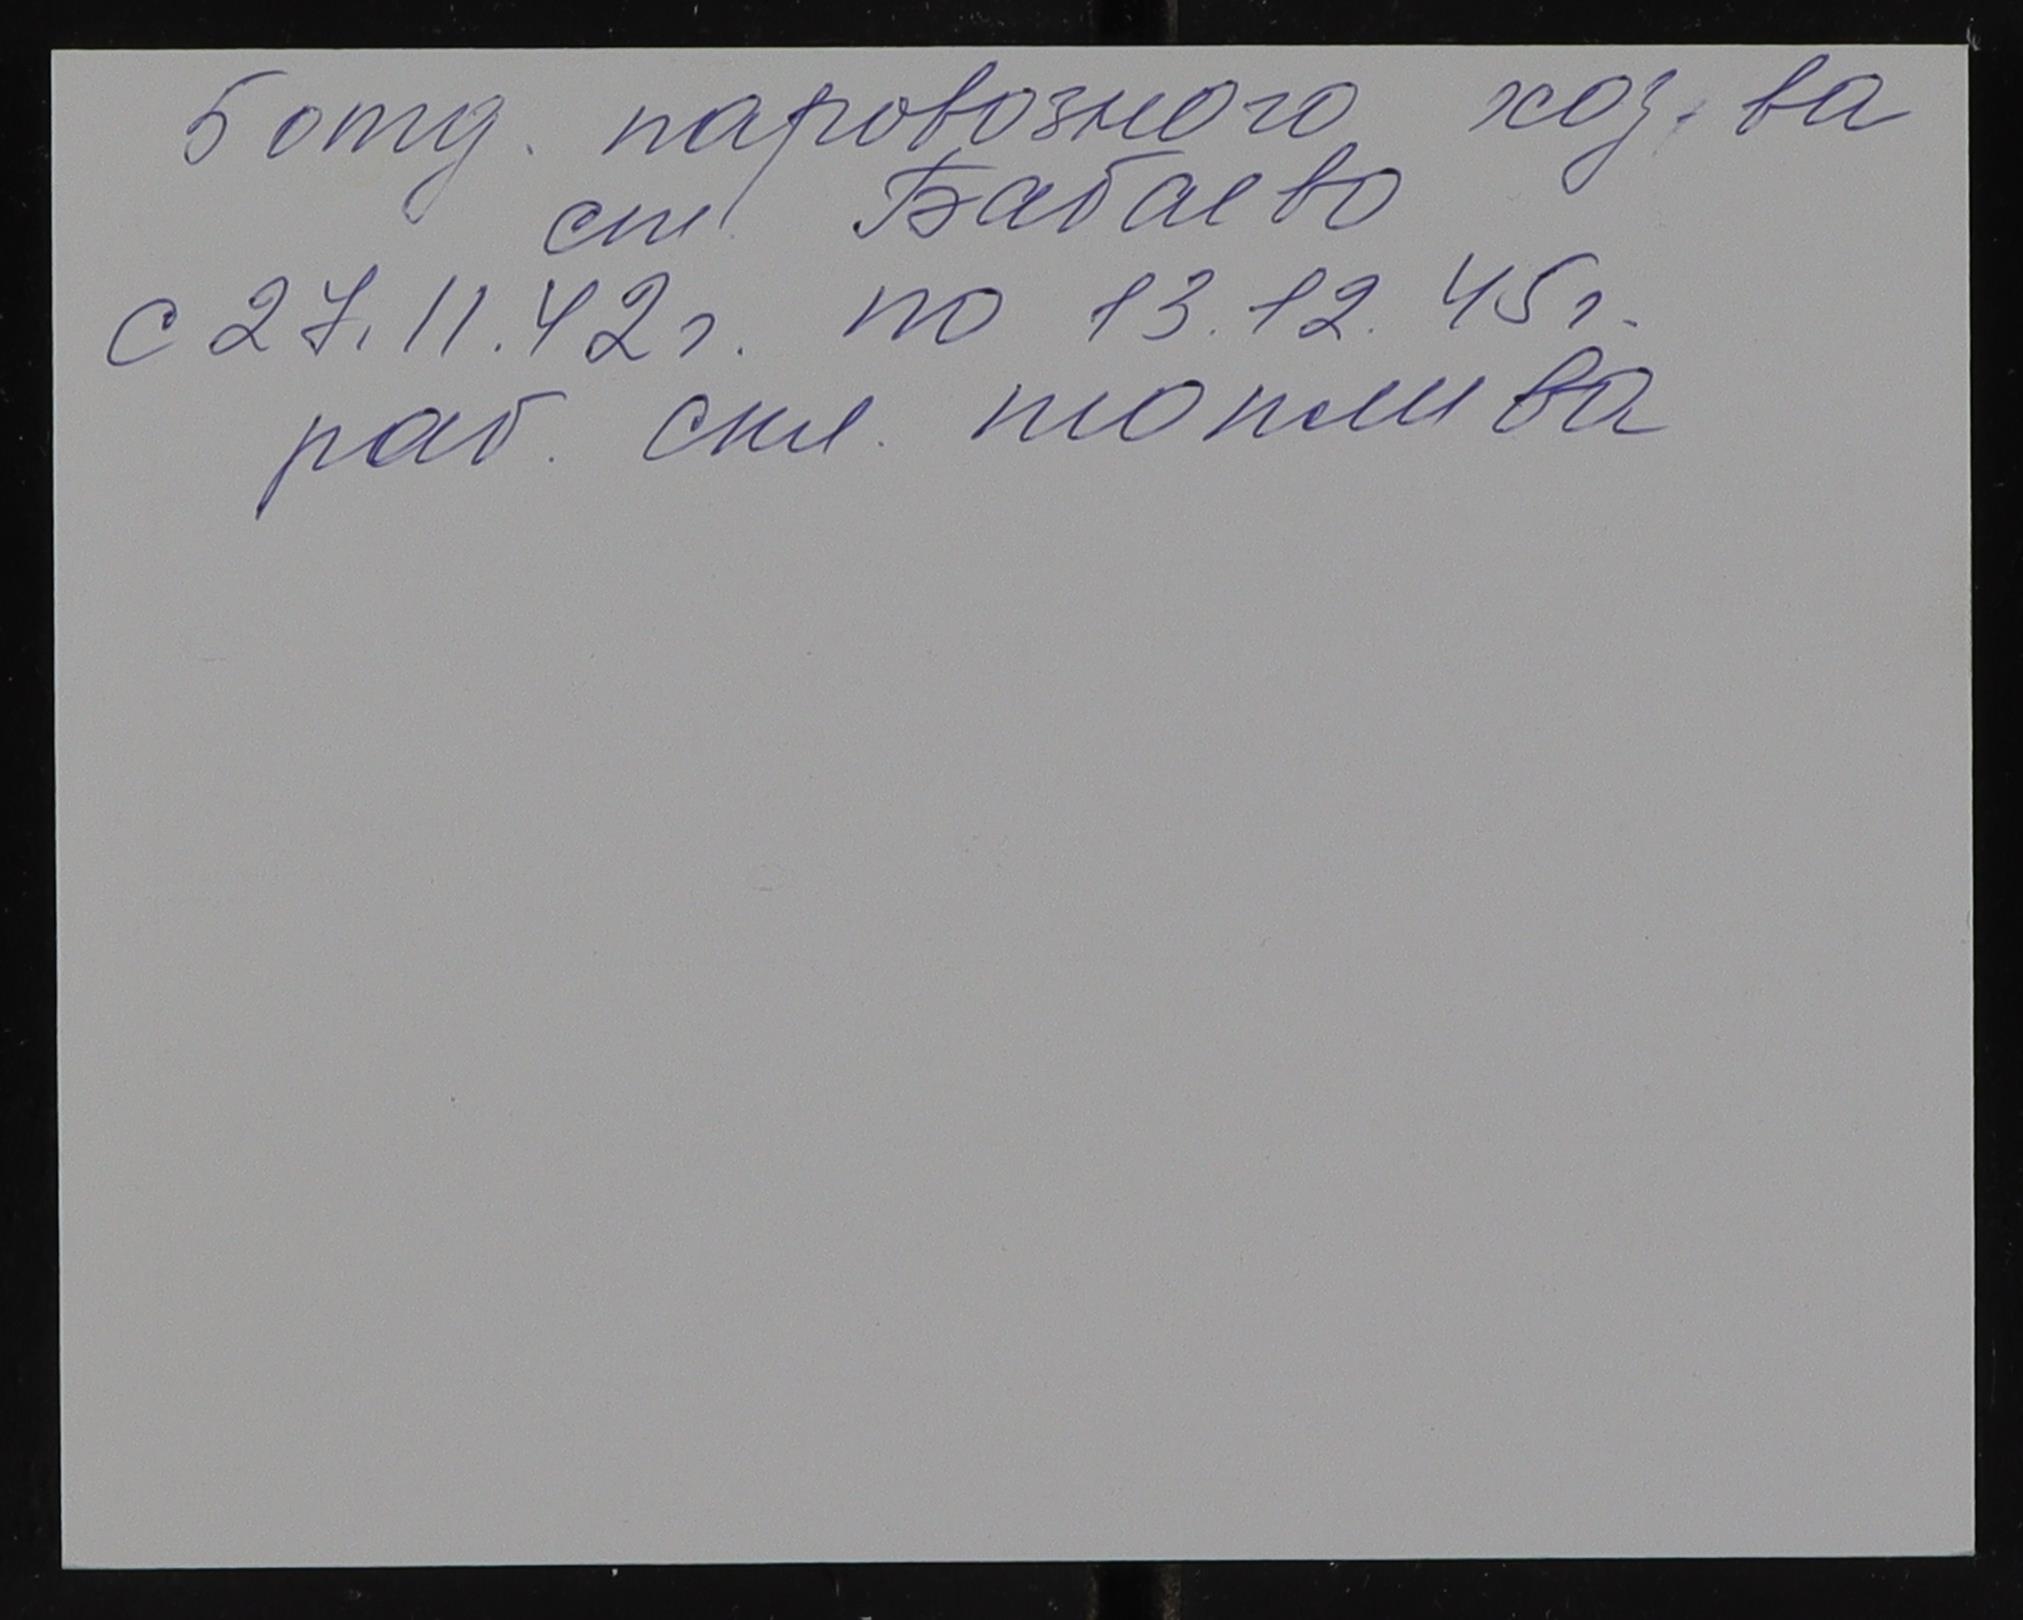 5 отд. паровозного хоз. ва
ст. Бабаево
с 27.11.42г. по 13.12.45г.
раб. скл. топлива